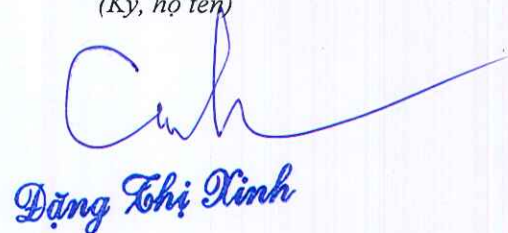 (Ký, họ tên)
Đặng Thị Xinh